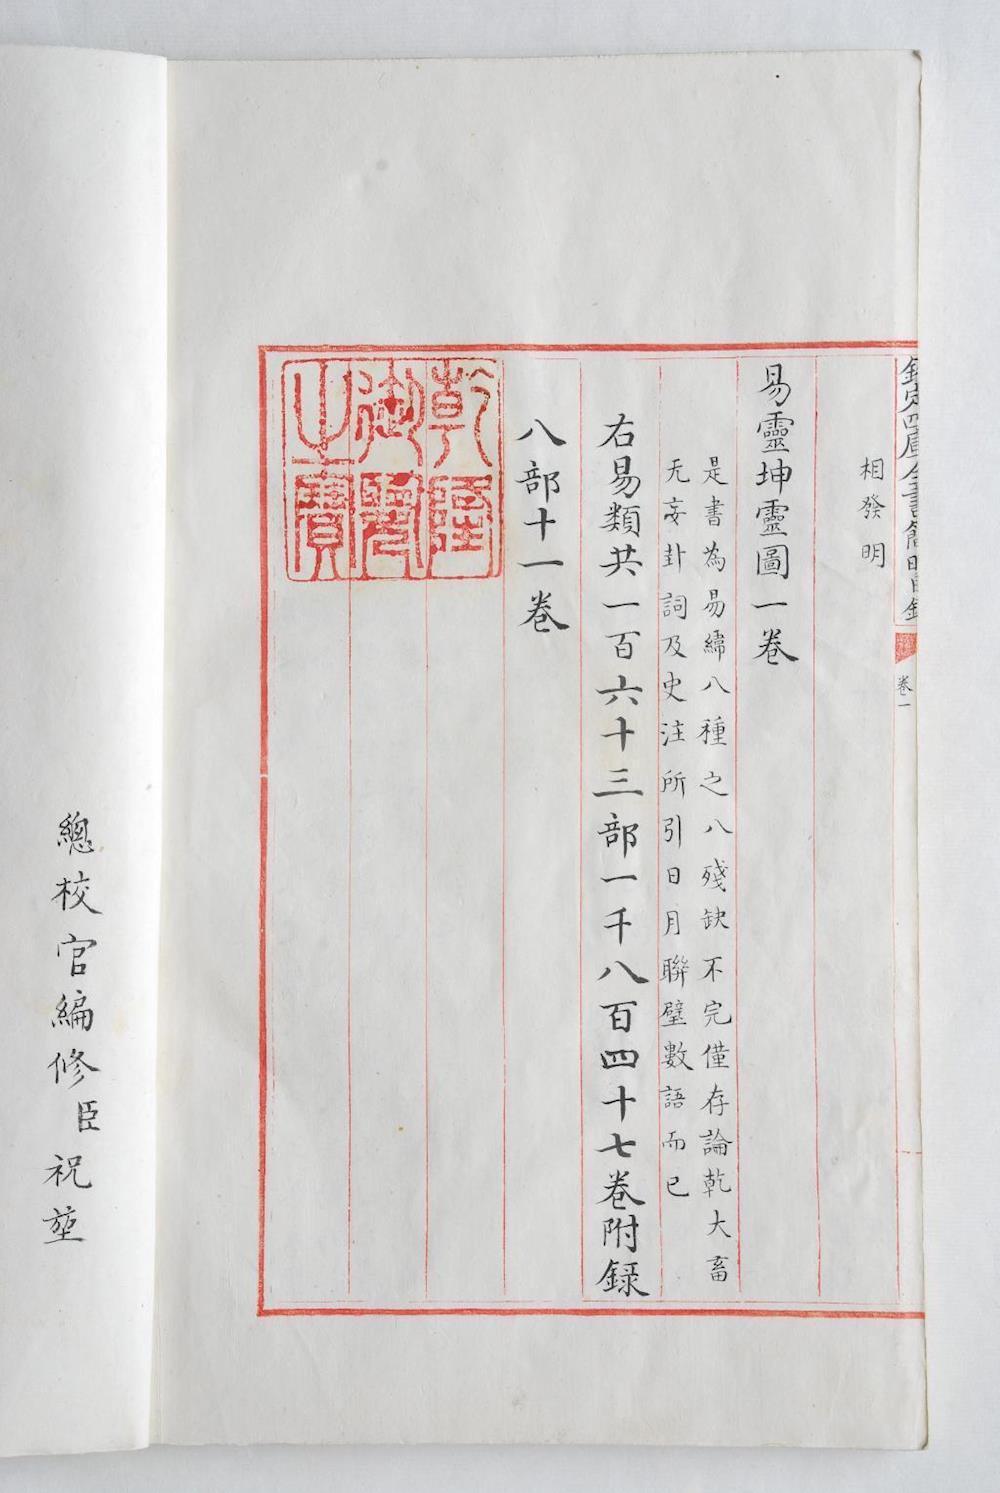 欽定四庫全書簡明目錄
卷一
相發明
易靈坤靈圖一卷
是書為易緯八種之八殘缺不完僅存論乾大畜
无妄卦詞及史注所引日月聯璧數語而已
右易類共一百六十三部一千八百四十七卷附録
八部十一卷
乾隆御覽之寶
總校官編修臣祝堃